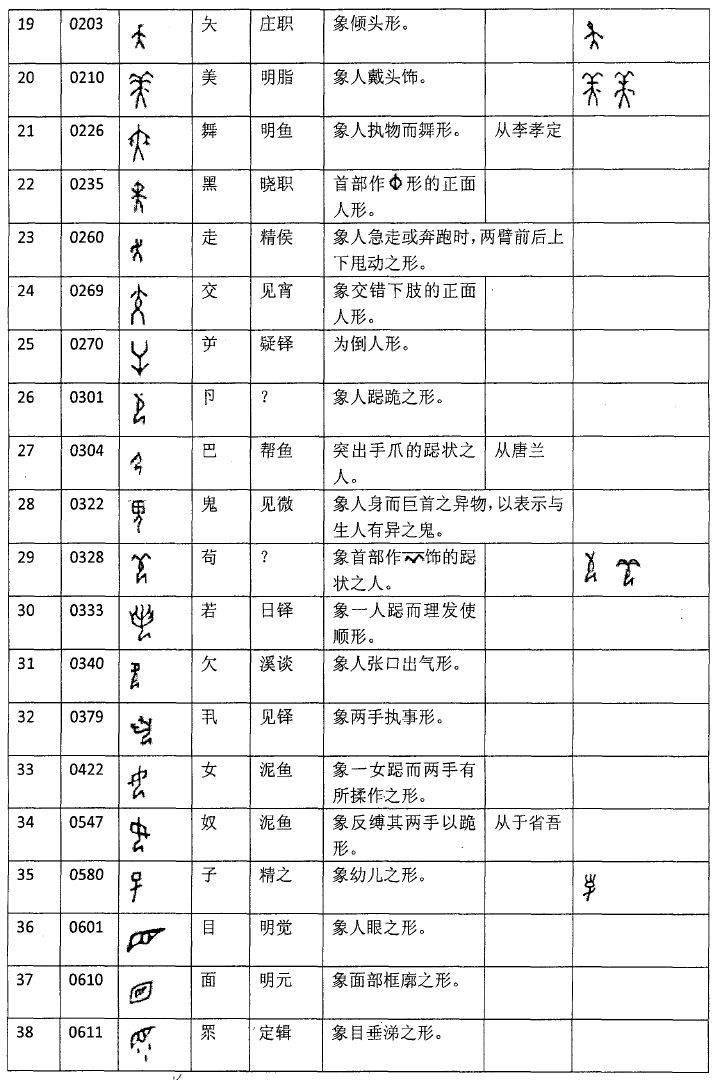 19 0203 夨 庄职 象倾头形。
20 0210 美 明脂 象人戴头饰。
21 0226 舞 明鱼 象人执物而舞形。 从李孝定
22 0235 黑 晓职 首部作形的正面
人形。
23 0260 走 精侯 象人急走或奔跑时，两臂前后上
下甩动之形。
24 0269 交 见宵 象交错下肢的正面
人形。
25 0270 屰 疑铎 为倒人形。
26 0301 卪 ？ 象人跽跪之形。
27 0304 巴 帮鱼 突出手爪的跽状之 从唐兰
人。
28 0322 鬼 见微 象人身而巨首之异物，以表示与
生人有异之鬼。
29 0328 苟 ？ 象首部作饰的跽
状之人。
30 0333 若 日铎 象一人跽而理发使
顺形。
31 0340 欠 溪谈 象人张口出气形。
32 0379 丮 见铎 象两手执事形。
33 0422 女 泥鱼 象一女跽而两手有
所揉作之形。
34 0547 奴 泥鱼 象反缚其两手以跪 从于省吾
形。
35 0580 子 精之 象幼儿之形。
36 0601 目 明觉 象人眼之形。
37 0610 面 明元 象面部框廓之形。
38 0611 眔 定辑 象目垂涕之形。